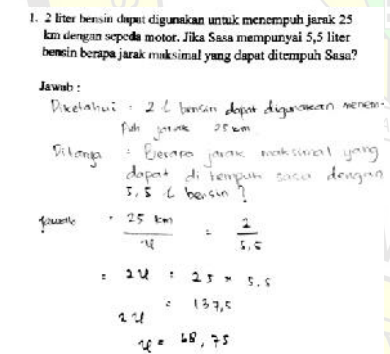 1. 2 liter bensin dapat digunakan untuk menempuh jarak 25
km dengan sepeda motor. Jika Sasa mempunyai 5,5 liter
bensin berapa jarak maksimal yang dapat ditempuh Sasa?
Jawab :
Diketahui : 2 L bensin dapat digunakan menem-
puh jarak 25 km
Ditanya : Berapa jarak maksimal yang
dapat di tempuh sasa dengan
5,5 L bensin ?
Jawab : 25 km / y = 2 / 5,5
= 2y : 25 × 5.5
2y = 137,5
y = 68,75